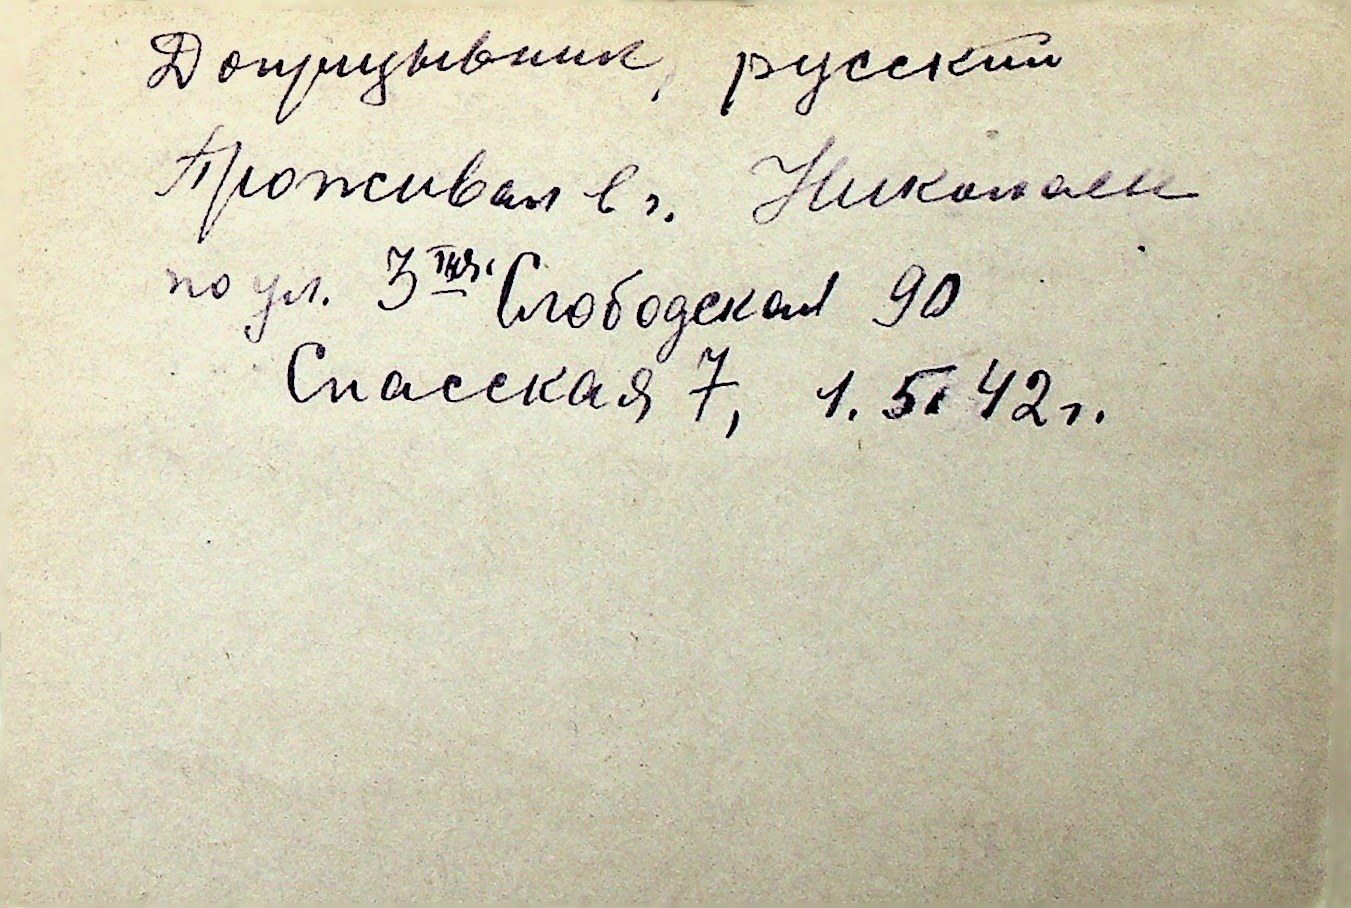 Допризывник, русский
Проживал в г. Николаев
по ул. 3 Слободская 90
Спасская 7, 1. 5. 42 г.